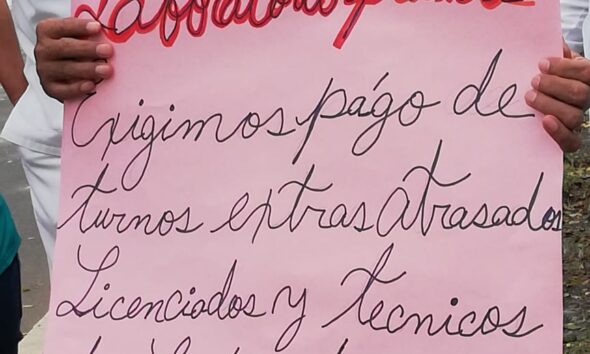 Laboratorio
Exigimos págo de
turnos extras atrasados
Licenciados y tecnicos